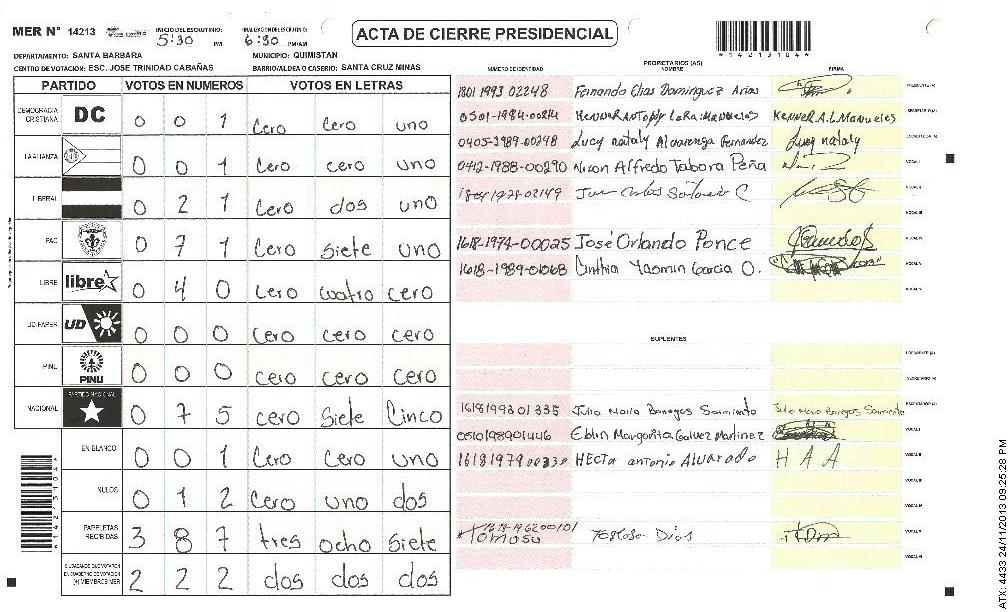 MER N° 14213 INICIO DEL ESCRUTINIO: 5:30 PM FINALIZACION DEL ESCRUTINIO: 6:30 PM/AM
ACTA DE CIERRE PRESIDENCIAL
*14213104*
DEPARTAMENTO: SANTA BARBARA MUNICIPIO: QUIMISTAN
CENTRO DE VOTACION: ESC. JOSE TRINIDAD CABAÑAS BARRIO/ALDEA O CASERIO: SANTA CRUZ MINAS
PARTIDO VOTOS EN NUMEROS VOTOS EN LETRAS
DEMOCRACIA CRISTIANA DC 0 0 1 Cero Cero uno
LA ALIANZA 0 0 1 Cero cero uno
LIBERAL 0 2 1 Cero dos uno
PAC 0 7 1 Cero siete uno
LIBRE libre 0 4 0 Cero cuatro cero
UD-FAPER UD 0 0 0 Cero cero cero
PINU PINU 0 0 0 cero cero cero
NACIONAL PARTIDO NACIONAL 0 7 5 cero siete Cinco
EN BLANCO 0 0 1 Cero Cero uno
NULOS 0 1 2 Cero uno dos
PAPELETAS RECIBIDAS 3 8 7 tres ocho siete
CIUDADANOS QUE VOTARON EN CUADERNO DE VOTACION (+) MIEMBROS MER 2 2 2 dos dos dos
PROPIETARIOS (AS)
NUMERO DE IDENTIDAD NOMBRE FIRMA
1801 1993 02248 Fernando Elias Dominguez Arias PRESIDENTE (A)
0501-1984- KENNER Antony Lara Manueles KENNER.A.L.Manueles SECRETARIO (A)
0405-1989-00248 Lucy nataly Alvarenga Fernandez Lucy nataly ESCRUTADOR (A)
0412-1988-00290 Nixon Alfredo Tabora Peña VOCAL I
Juan Carlos C VOCAL II
VOCAL III
1618-1974-00025 José Orlando Ponce VOCAL IV
1618-1989-01068 Cinthia Yasmin Garcia O. VOCAL V
SUPLENTES
PRESIDENTE (A)
SECRETARIO (A)
1618199301335 Julia Maria Banegas Sarmiento Julia Maria Banegas Sarmiento ESCRUTADOR (A)
0510198901446 Eblin Margarita Galvez Martinez VOCAL I
1618197900330 HECTOR antonio Alvarado H A A VOCAL II
VOCAL III
VOCAL IV
1618-196200101 Dios VOCAL V
ATX: 4433 24/11/2013 09:25:28 PM